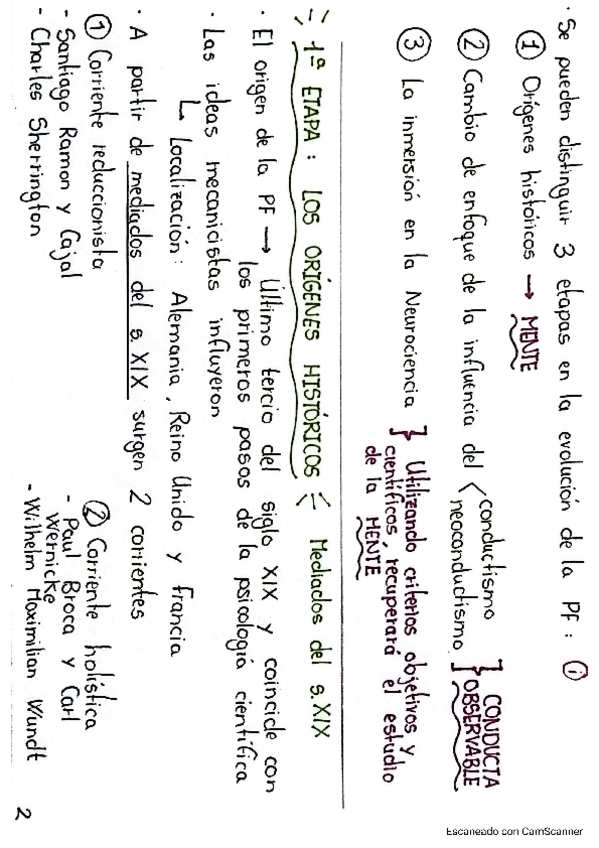 · Se pueden distinguir 3 etapas en la evolución de la PF: i
① Orígenes históricos → MENTE
② Cambio de enfoque de la influencia del < conductismo
neoconductismo } CONDUCTA
OBSERVABLE
③ La inmersión en la Neurociencia } Utilizando criterios objetivos y
científicos, recuperará el estudio
de la MENTE
1º ETAPA: LOS ORÍGENES HISTÓRICOS Mediados del s.XIX
· El origen de la PF → Último tercio del siglo XIX y coincide con
los primeros pasos de la psicología científica
· Las ideas mecanicistas influyeron
↳ Localización: Alemania, Reino Unido y Francia
· A partir de mediados del s.XIX surgen 2 corrientes
① Corriente reduccionista
- Santiago Ramon y Cajal
- Charles Sherrington
② Corriente holística
- Paul Broca y Carl
Wernicke
- Wilhelm Maximilian Wundt
2
Escaneado con CamScanner